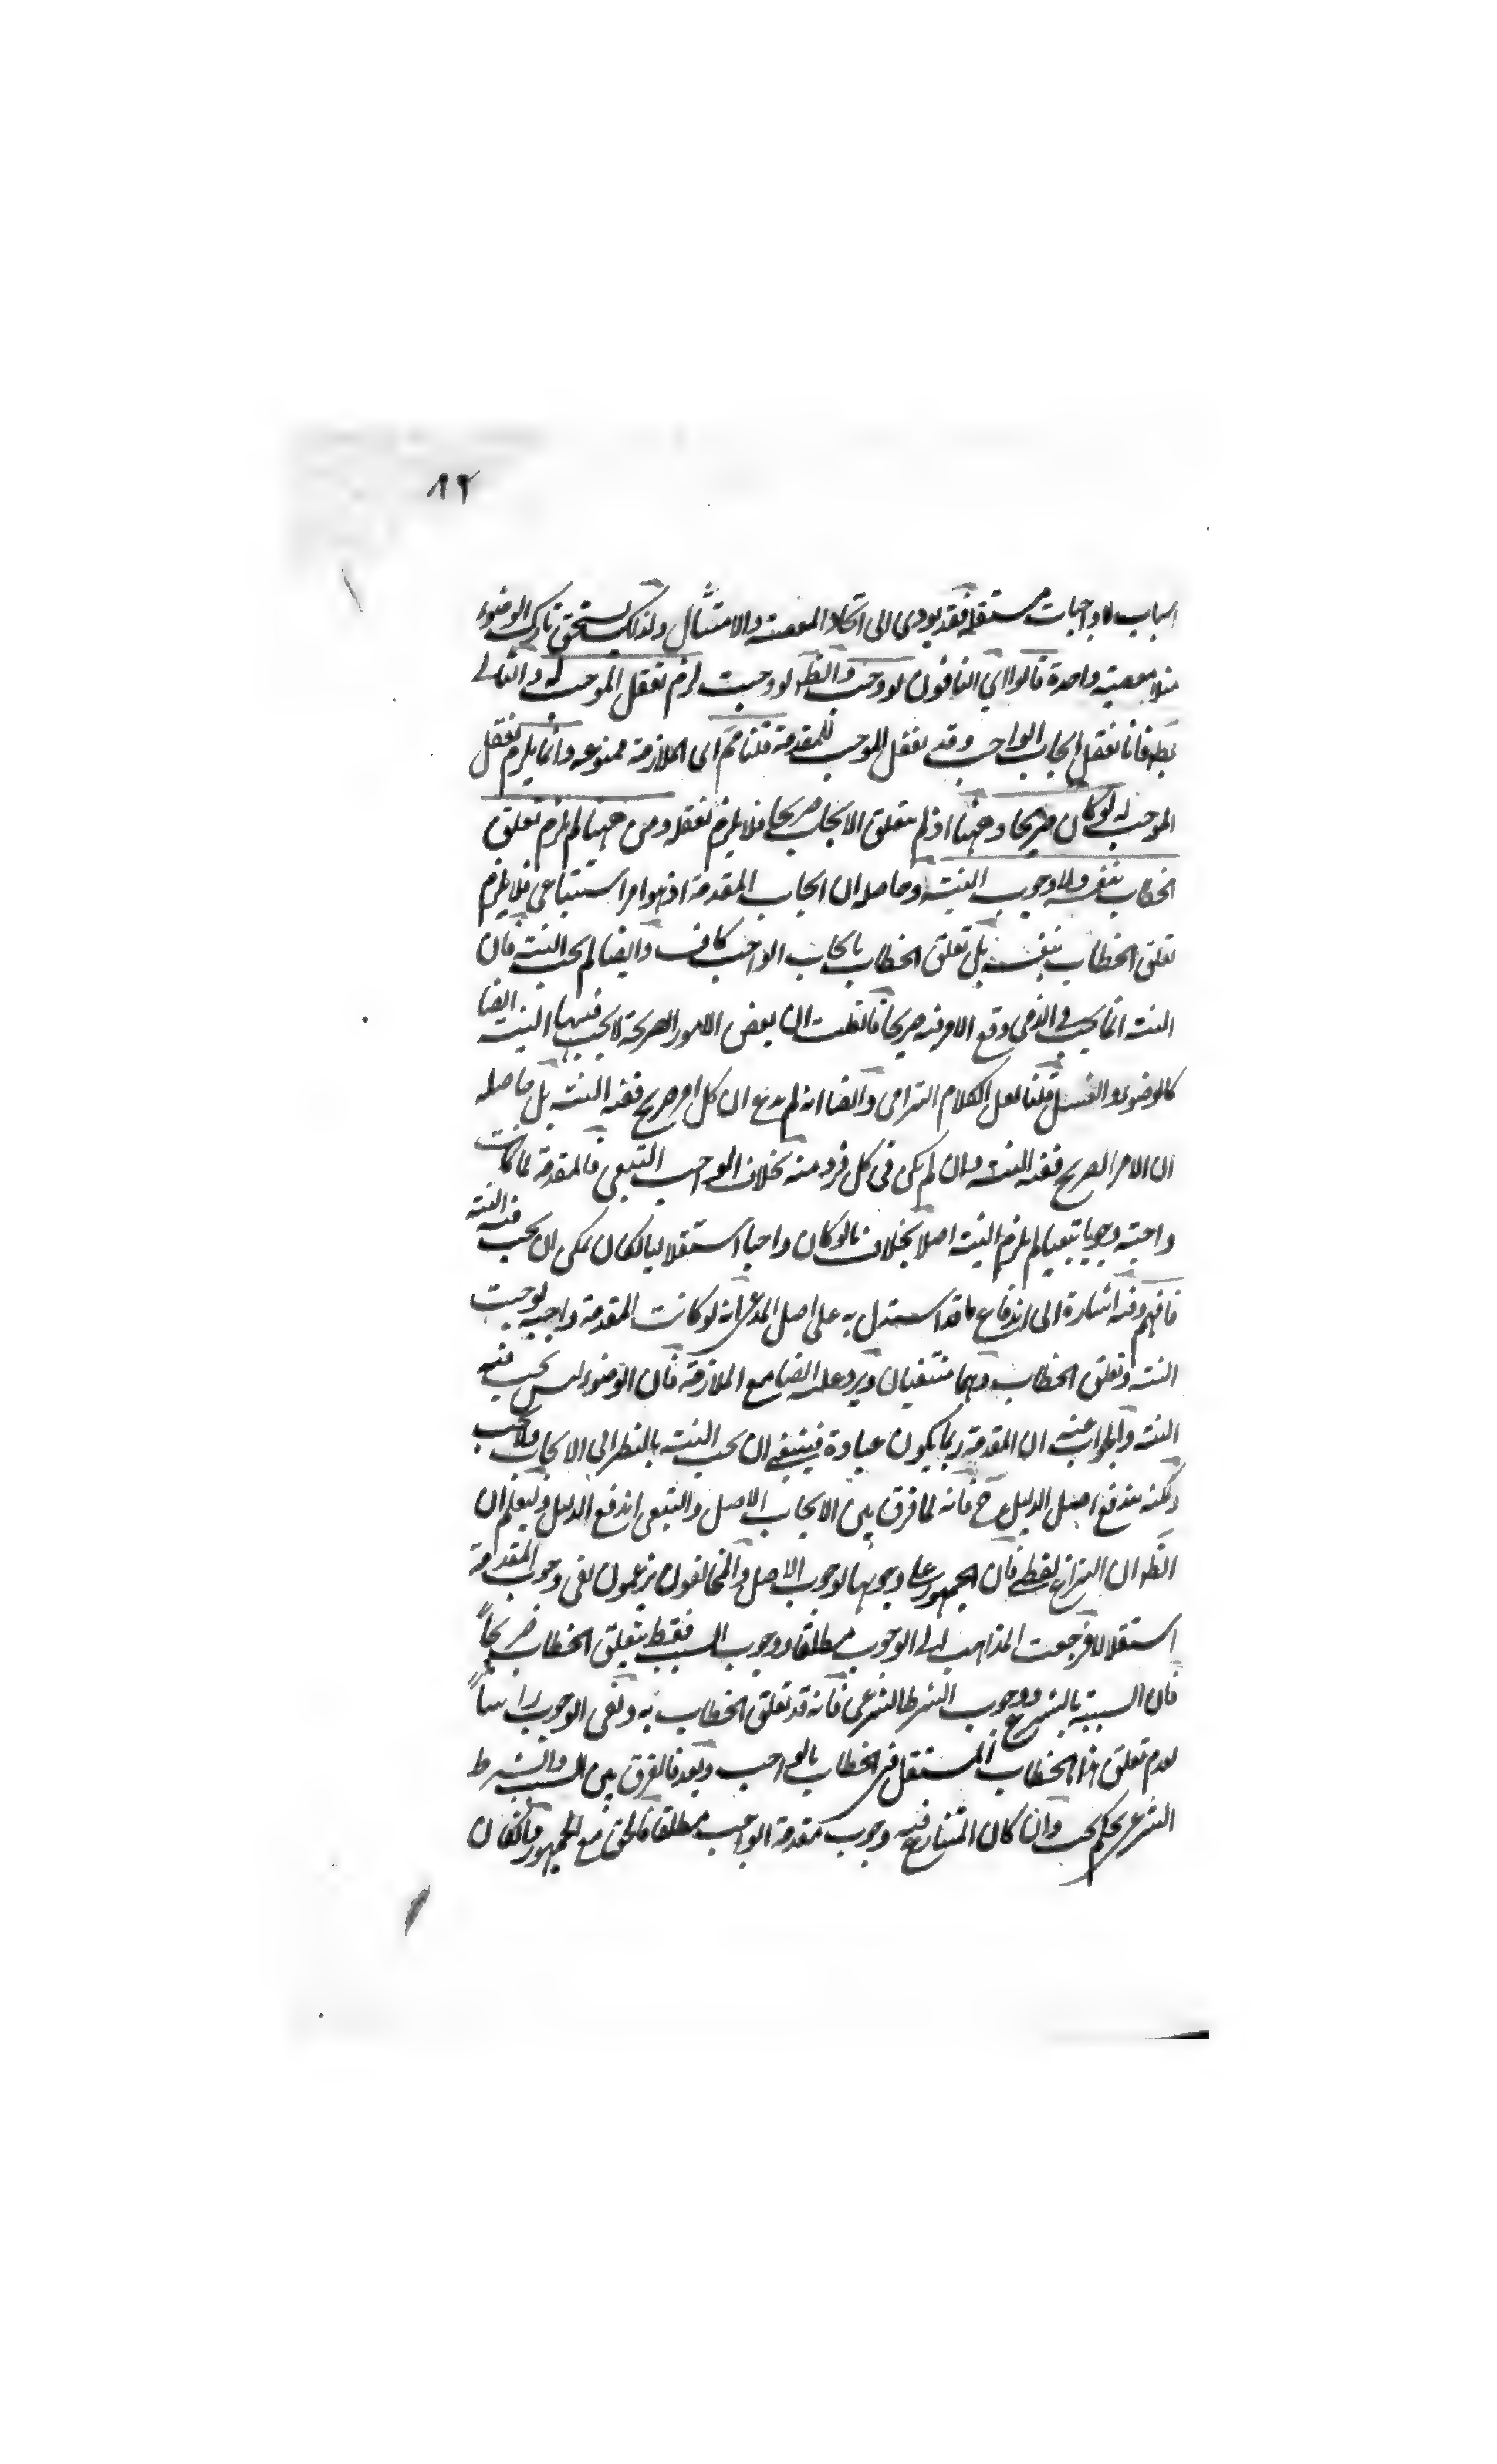 ٩٢
اسباب لا واجبات مستقلة فقد يودى الى اتحاد المعصية والامتثال ولذلك يستحق تارك الوضوء
مثلا معصية واحدة قالوا اي النافون لو وجب والظ لو وجبت لزم تعقل الموجب له والتالى
بط فانا نعقل ايجاب الواجب وقد نغفل الموجب للمقدمة قلنا مم اى الملازمة ممنوعه وانما يلزم تعقل
الموجب له لو كان صريحا وههنا اذ لم يتعلق الايجاب صريحا فلا يلزم تعقله ومن ههنا لم يلزم تعلق
الخطاب بنفسه ولا وجوب النية وحاصله ان ايجاب المقدمة اذ هو امر استتباعى فلا يلزم
تعلق الخطاب بنفسه بل تعلق الخطاب بايجاب الواجب كاف وايضا لم يجب النية فان
النية انما يجب فى الذى وقع الامر فيه صريحا فان قلت ان بعض الامور الصريحة لا يجب فيها النية ايضا
كالوضوء والغسل قلنا لعل الكلام الزامى وايضا انه لم يدع ان كل امر صريح ففيه النية بل حاصله
ان الامر الصريح ففيه النية وان لم يكن فى كل فرد منه بخلاف الواجب التبعى فالمقدمة لما كانت
واجبة وجوبا تبعيا لم يلزم النية اصلا بخلاف ما لو كان واجبا استقلاليا لكان يمكن ان يجب فيه النية
فافهم وفيه اشارة الى اندفاع ما قد استدل به على اصل المدعى انه لو كانت المقدمة واجبة لوجبت
النية وتعلق الخطاب وهما منتفيان ويرد عليه ايضا منع الملازمة فان الوضوء ليس يجب فيه
النية والجواب عنه ان المقدمة ربما يكون عبادة فينبغى ان يجب النية بالنظر الى الايجاب ولا يجب
ولكنه يندفع اصل الدليل ح فانه لما فرق بين الايجاب الاصل والتبعى اندفع الدليل وليعلم ان
الظ ان النزاع لفظى فان الجمهور على وجوبها لوجوب الاصل والمخالفون يزعمون نفى وجوب المقدمة
استقلالا فرجعت المذاهب الى الوجوب مطلقا ووجوب السبب فقط بتعلق الخطاب صريحاً
فان السببية بالشرع ووجوب الشرط الشرعى فانه قد تعلق الخطاب به ونفى الوجوب راساً
لعدم تعلق هذا الخطاب المستقل فى الخطاب بالواجب وبعد فالفرق بين السبب والشرط
الشرعى تحكم بحت وان كان المتنازع فيه وجوب مقدمة الواجب مطلقا فالحق مع الجمهور ولكان